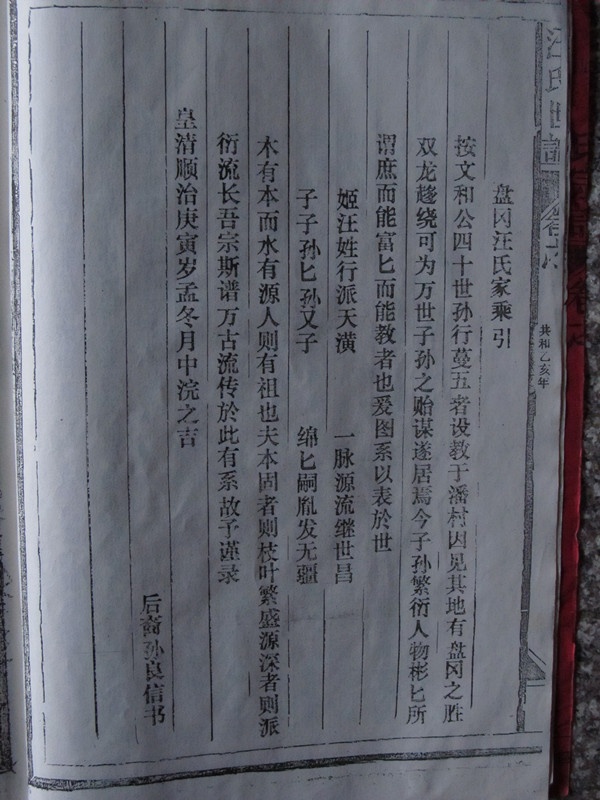 汪氏世谱
共和乙亥年
盘冈汪氏家乘引
按文和公四十世孙行蔓五者设教于潘村因见其地有盘冈之胜
双龙趍绕可为万世子孙之贻谋遂居焉今子孙繁衍人物彬匕所
谓庶而能富匕而能教者也爰图系以表於世
姬汪姓行派天潢 一脉源流继世昌
子子孙匕孙又子 绵匕嗣胤发无疆
木有本而水有源人则有祖也夫本固者则枝叶繁盛源深者则派
衍流长吾宗斯谱万古流传於此有系故予谨录
皇清顺治庚寅岁孟冬月中浣之吉
后裔孙良信书